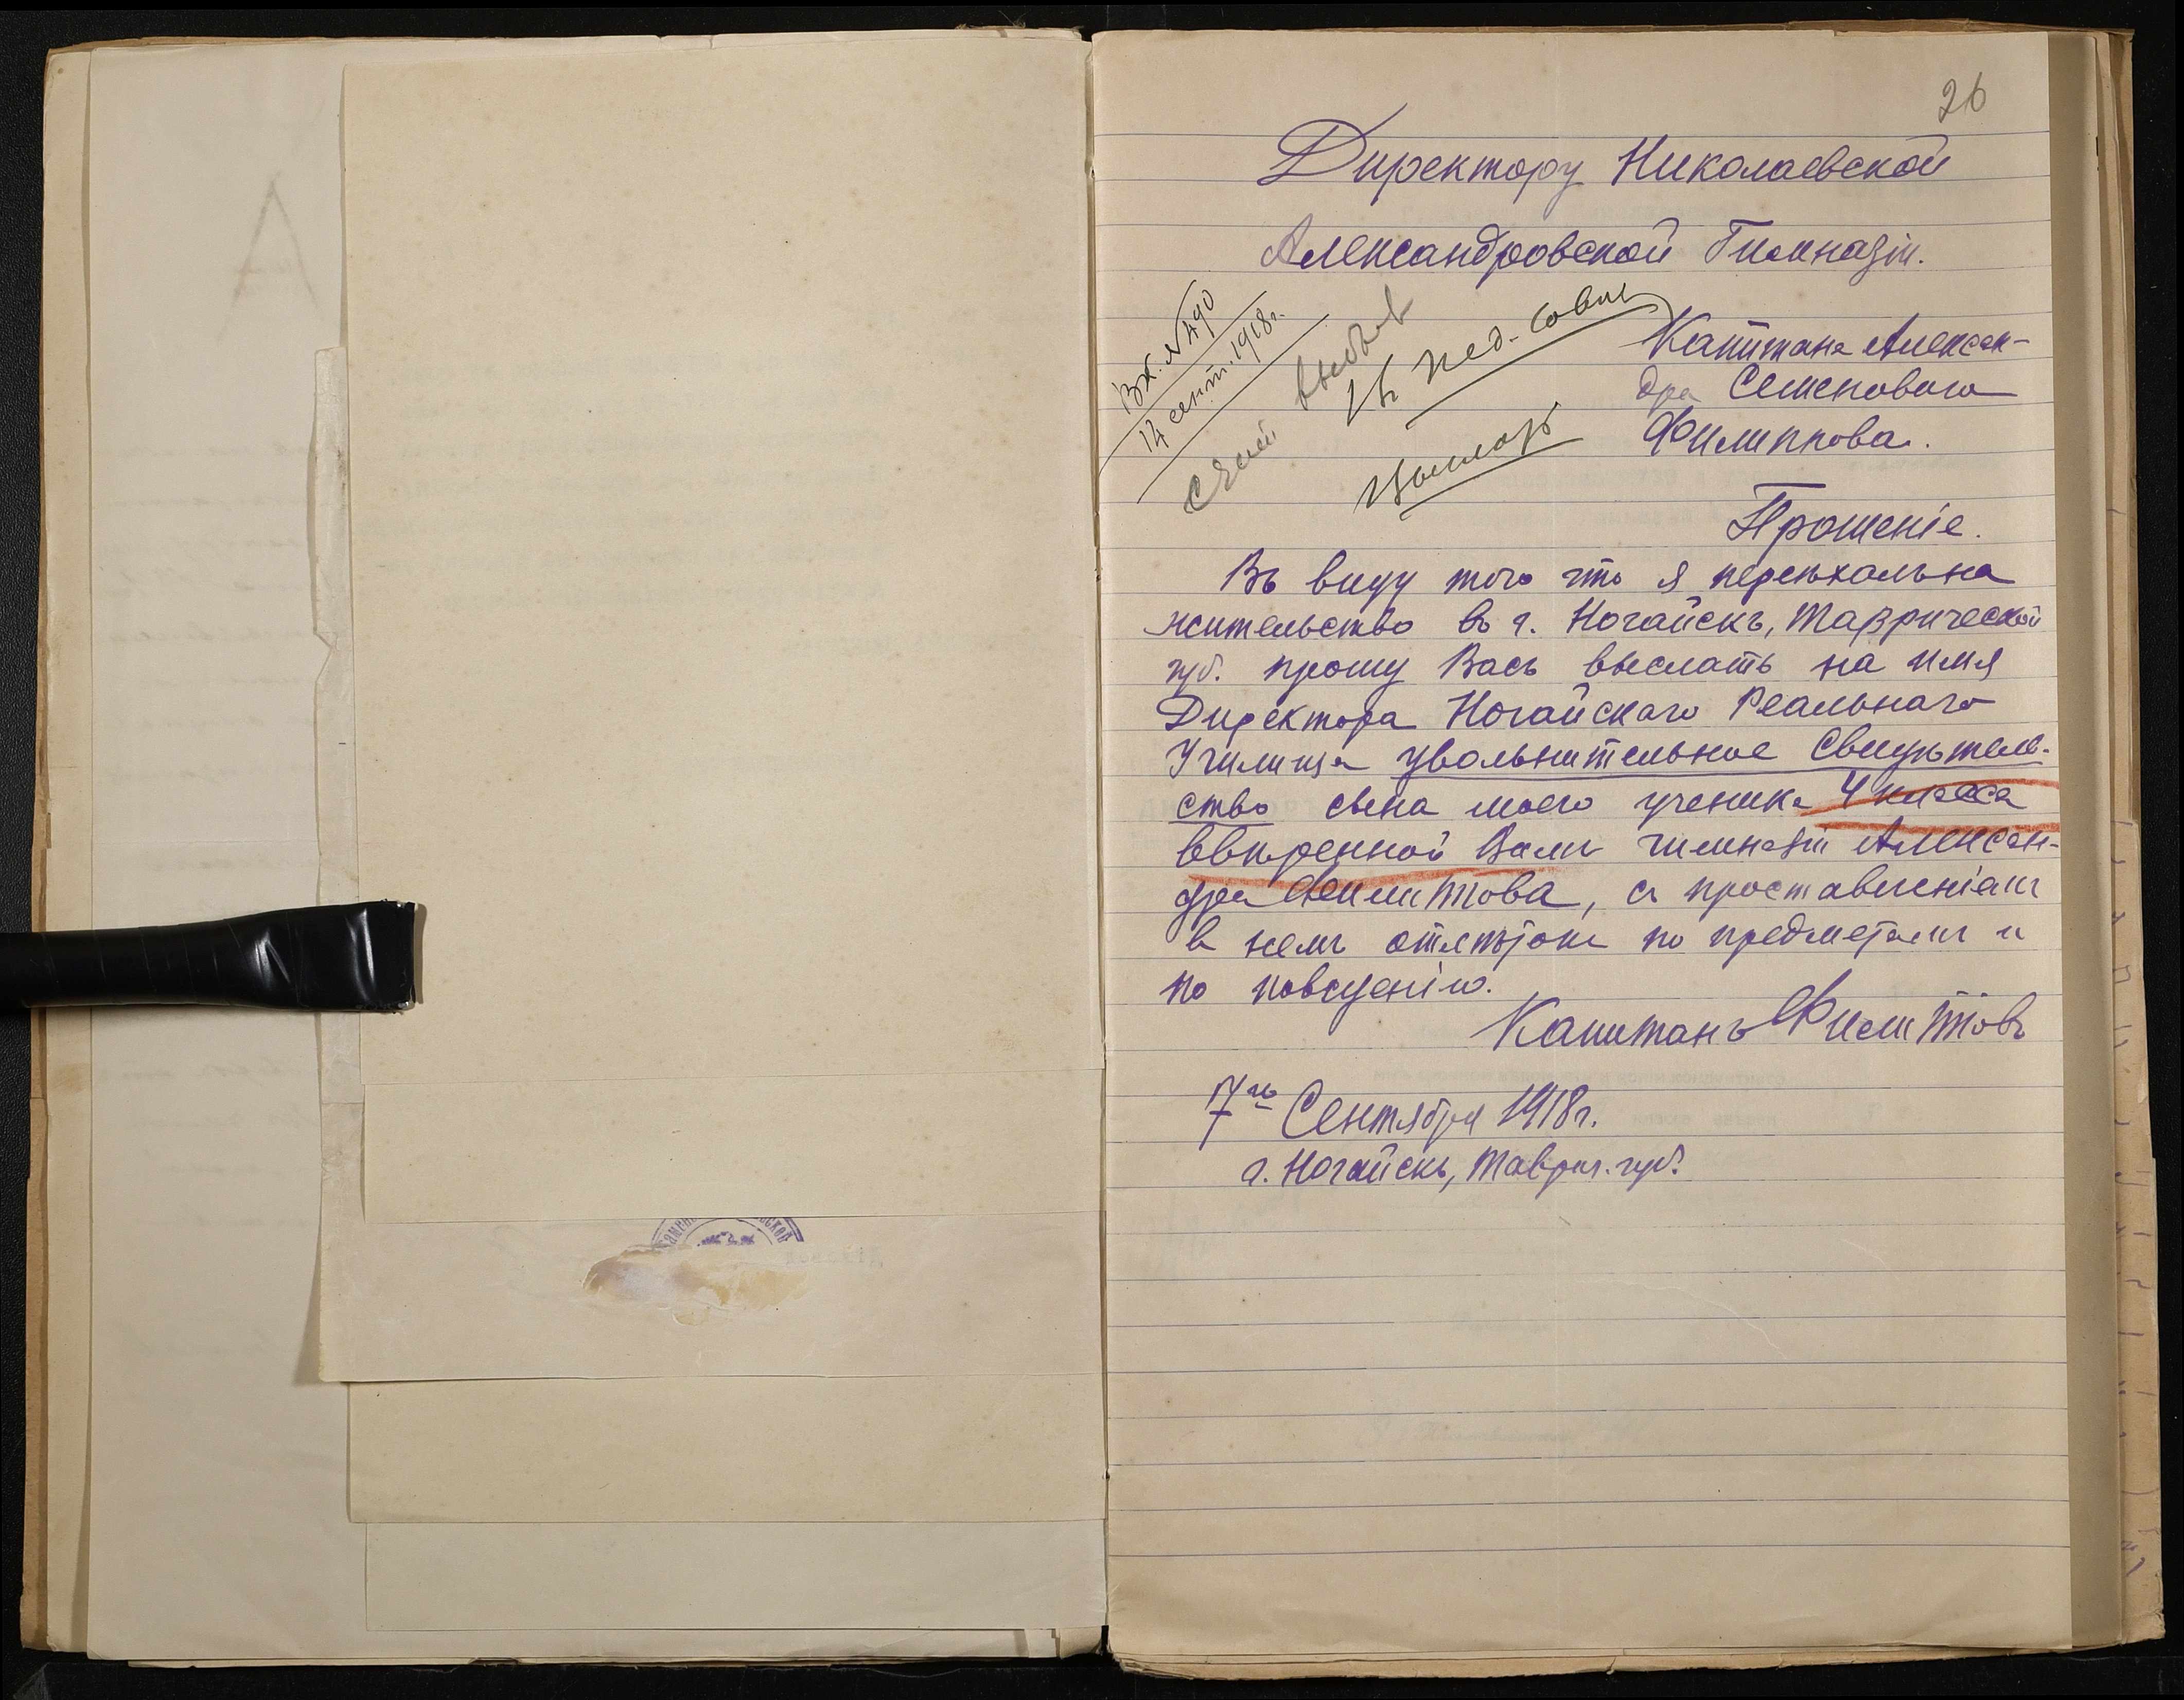 26
Директору Николаевской
Александровской Гимназіи.
Вх. №490
14 сент. 1918 г.
Въ Пед. совѣтъ
Капитана Алексан-
дра Семеновича
Филиппова.
Прошеніе.
Въ виду того что я переѣхалъ на
жительство въ г. Ногайскъ, Таврической
губ. прошу Васъ выслать на имя
Директора Ногайскаго Реальнаго
Училища увольнительное Свидѣтель-
ство сына моего ученика 4 класса
ввѣренной Вами гимназіи Алексан-
дра Филиппова, съ проставленіемъ
в немъ отмѣтокъ по предметамъ и
по поведенію.
Капитанъ Филипповъ
7го Сентября 1918 г.
г. Ногайскъ, Таврич. губ.